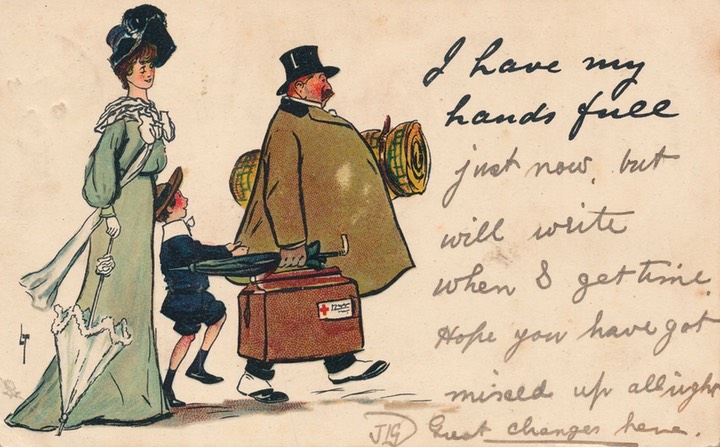 I have my
hands full
just now, but
will write
when I get time.
Hope you have got
mixed up allright
JLG Great changes here.